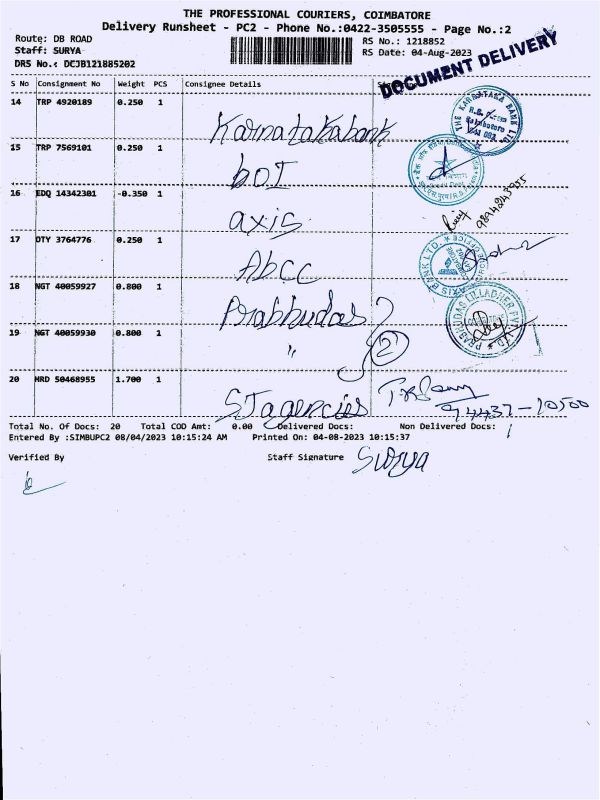 THE PROFESSIONAL COURIERS, COIMBATORE
Delivery Runsheet - PC2 - Phone No.:0422-3505555 - Page No.:2
Route: DB ROAD
RS No.: 1218852
Staff: SURYA
RS Date: 04-Aug-2023
DRS No.: DCJB121885202
DOCUMENT DELIVERY
S No Consignment No Weight PCS Consignee Details
14 TRP 4920189 0.250 1
Karnatakabank
THE KARNATAKA BANK LTD.
15 TRP 7569101 0.250 1
BOI
16 EDQ 14342301 -0.350 1
axis
17 DTY 3764776 0.250 1
AXIS BANK LTD.
Abcc
18 NGT 40059927 0.800 1
Prabhudas
PRABHUDAS LILLADHER PVT
19 NGT 40059930 0.800 1
" 2
20 HRD 50468955 1.700 1
STagencies
94437-10500
Total No. Of Docs: 20 Total COD Amt: 0.00 Delivered Docs: Non Delivered Docs: 1
Entered By :SIMBUPC2 08/04/2023 10:15:24 AM Printed On: 04-08-2023 10:15:37
Verified By Staff Signature Surya